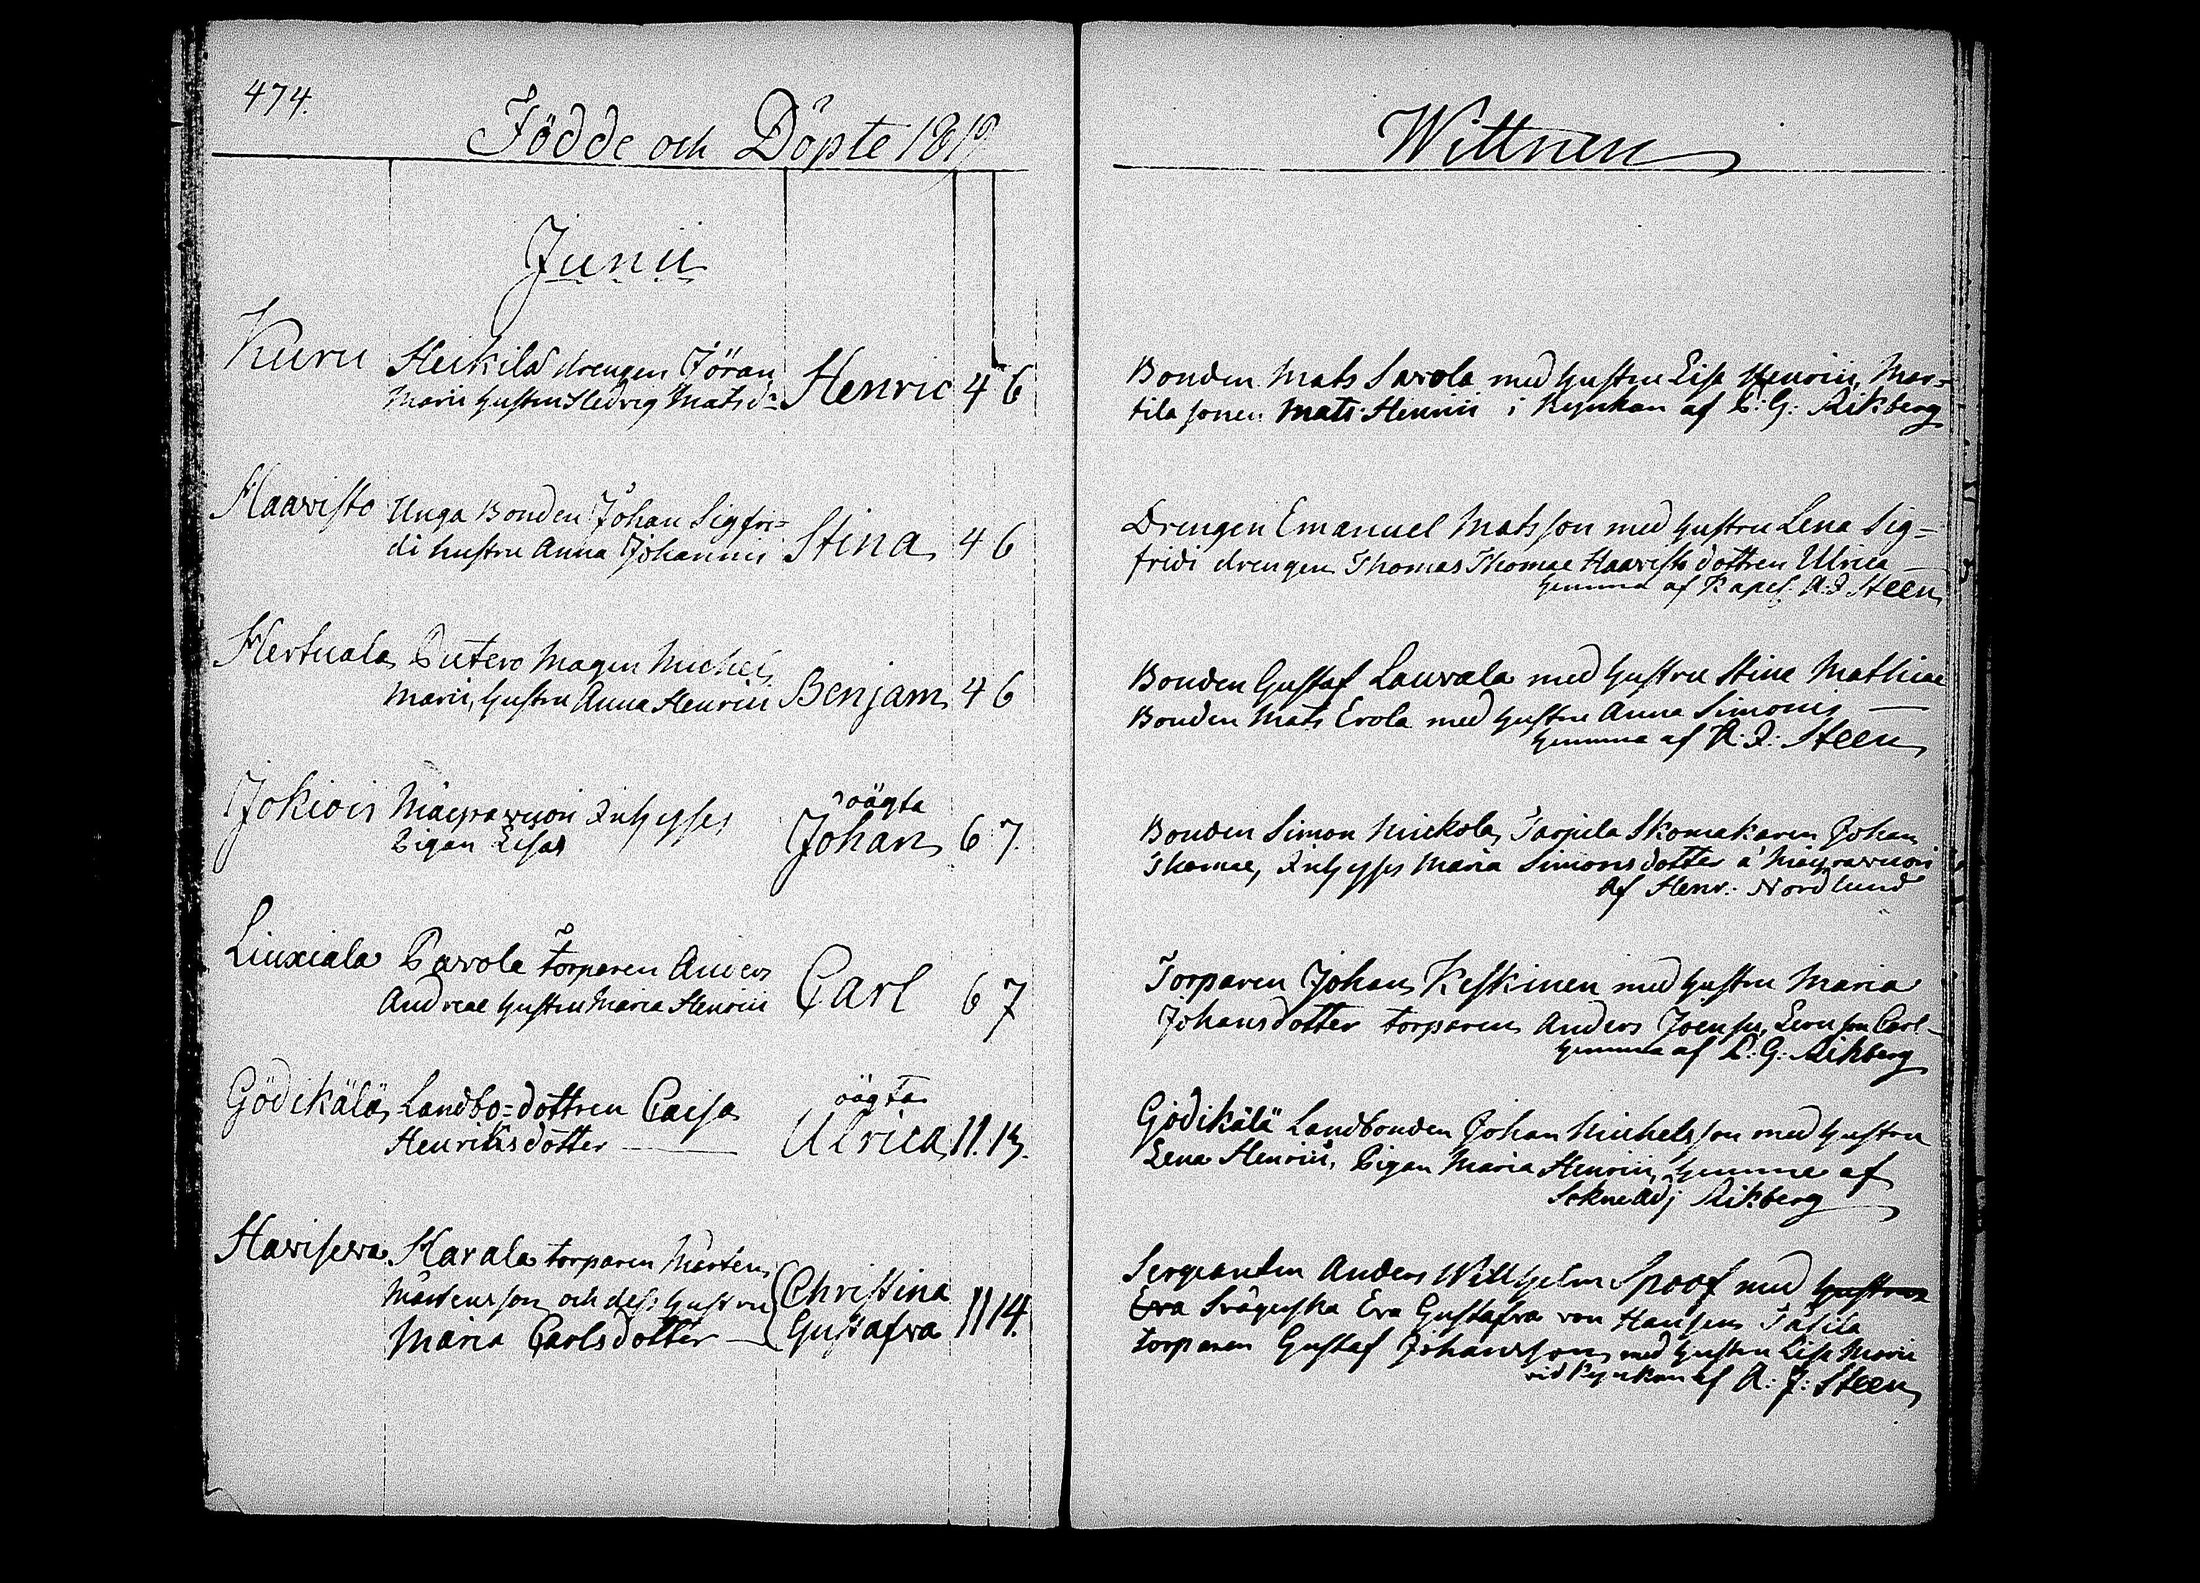 474.
Födde och Döpte 1819
Junii
Kuru Heikilä drengen Jöran
Marii hustru Hedvig Matsd: Henric 4 6
Haavisto Unga Bonden Johan Sigfri=
di hustru Anna Johannis Stina 4 6
Hertuala Putero Mågen Michel
Marii, hustru Anna Henrici Benjam 4 6
Jokiois Mäyrävuori Inhyses oägta
Pigan Lisa Johan 6 7.
Liuxiala Pavola torparen Anders
Andreae hustru Maria Henrici Carl 6 7
Gödikälä Landbo=dottren Caisa oägta
Henriksdotter Ulrica 11. 13.
Havisevä Harala torparen Mårten
Mårtensson och dess hustru Christina
Maria Carlsdotter Gustafva 11 14.
Wittnen
Bonden Mats Savola med hustru Lisa Henrici, Mar=
tila sonen Mats Henrici i Kyrkan af C: G: Rikberg
Drengen Emanuel Matsson med hustru Lena Sig=
fridi drengen Thomas Thomae Haavisto dottren Ulrica
hemma af Kapel. A: J Steen
Bonden Gustaf Lauvala med hustru Stina Mathiae
Bonden Mats Erola med hustru Anna Simonis
hemma af A: J: Steen
Bonden Simon Nickola, Tarpila Skomakaren Johan
Thomae, Inhyses Maria Simonsdotter a Mäyrävuori
Af Henr: Nordlund
Torparen Johan Keskinen med hustru Maria
Johansdotter torparen Anders son Carl
hemma af C: G: Rikberg
Gödikälä Landbonden Johan Michelsson med hustru
Lena Henrici, Pigan Maria Henrici, hemma af
SokneAdj Rikberg
Sergeanten Anders Wilhelm Spoof med hustrun
Eva Svägerska Eva Gustafva von Hausen Tasila
torparen Gustaf Johansson med hustru Lisa Marii
vid Kyrkan af A: J: Steen